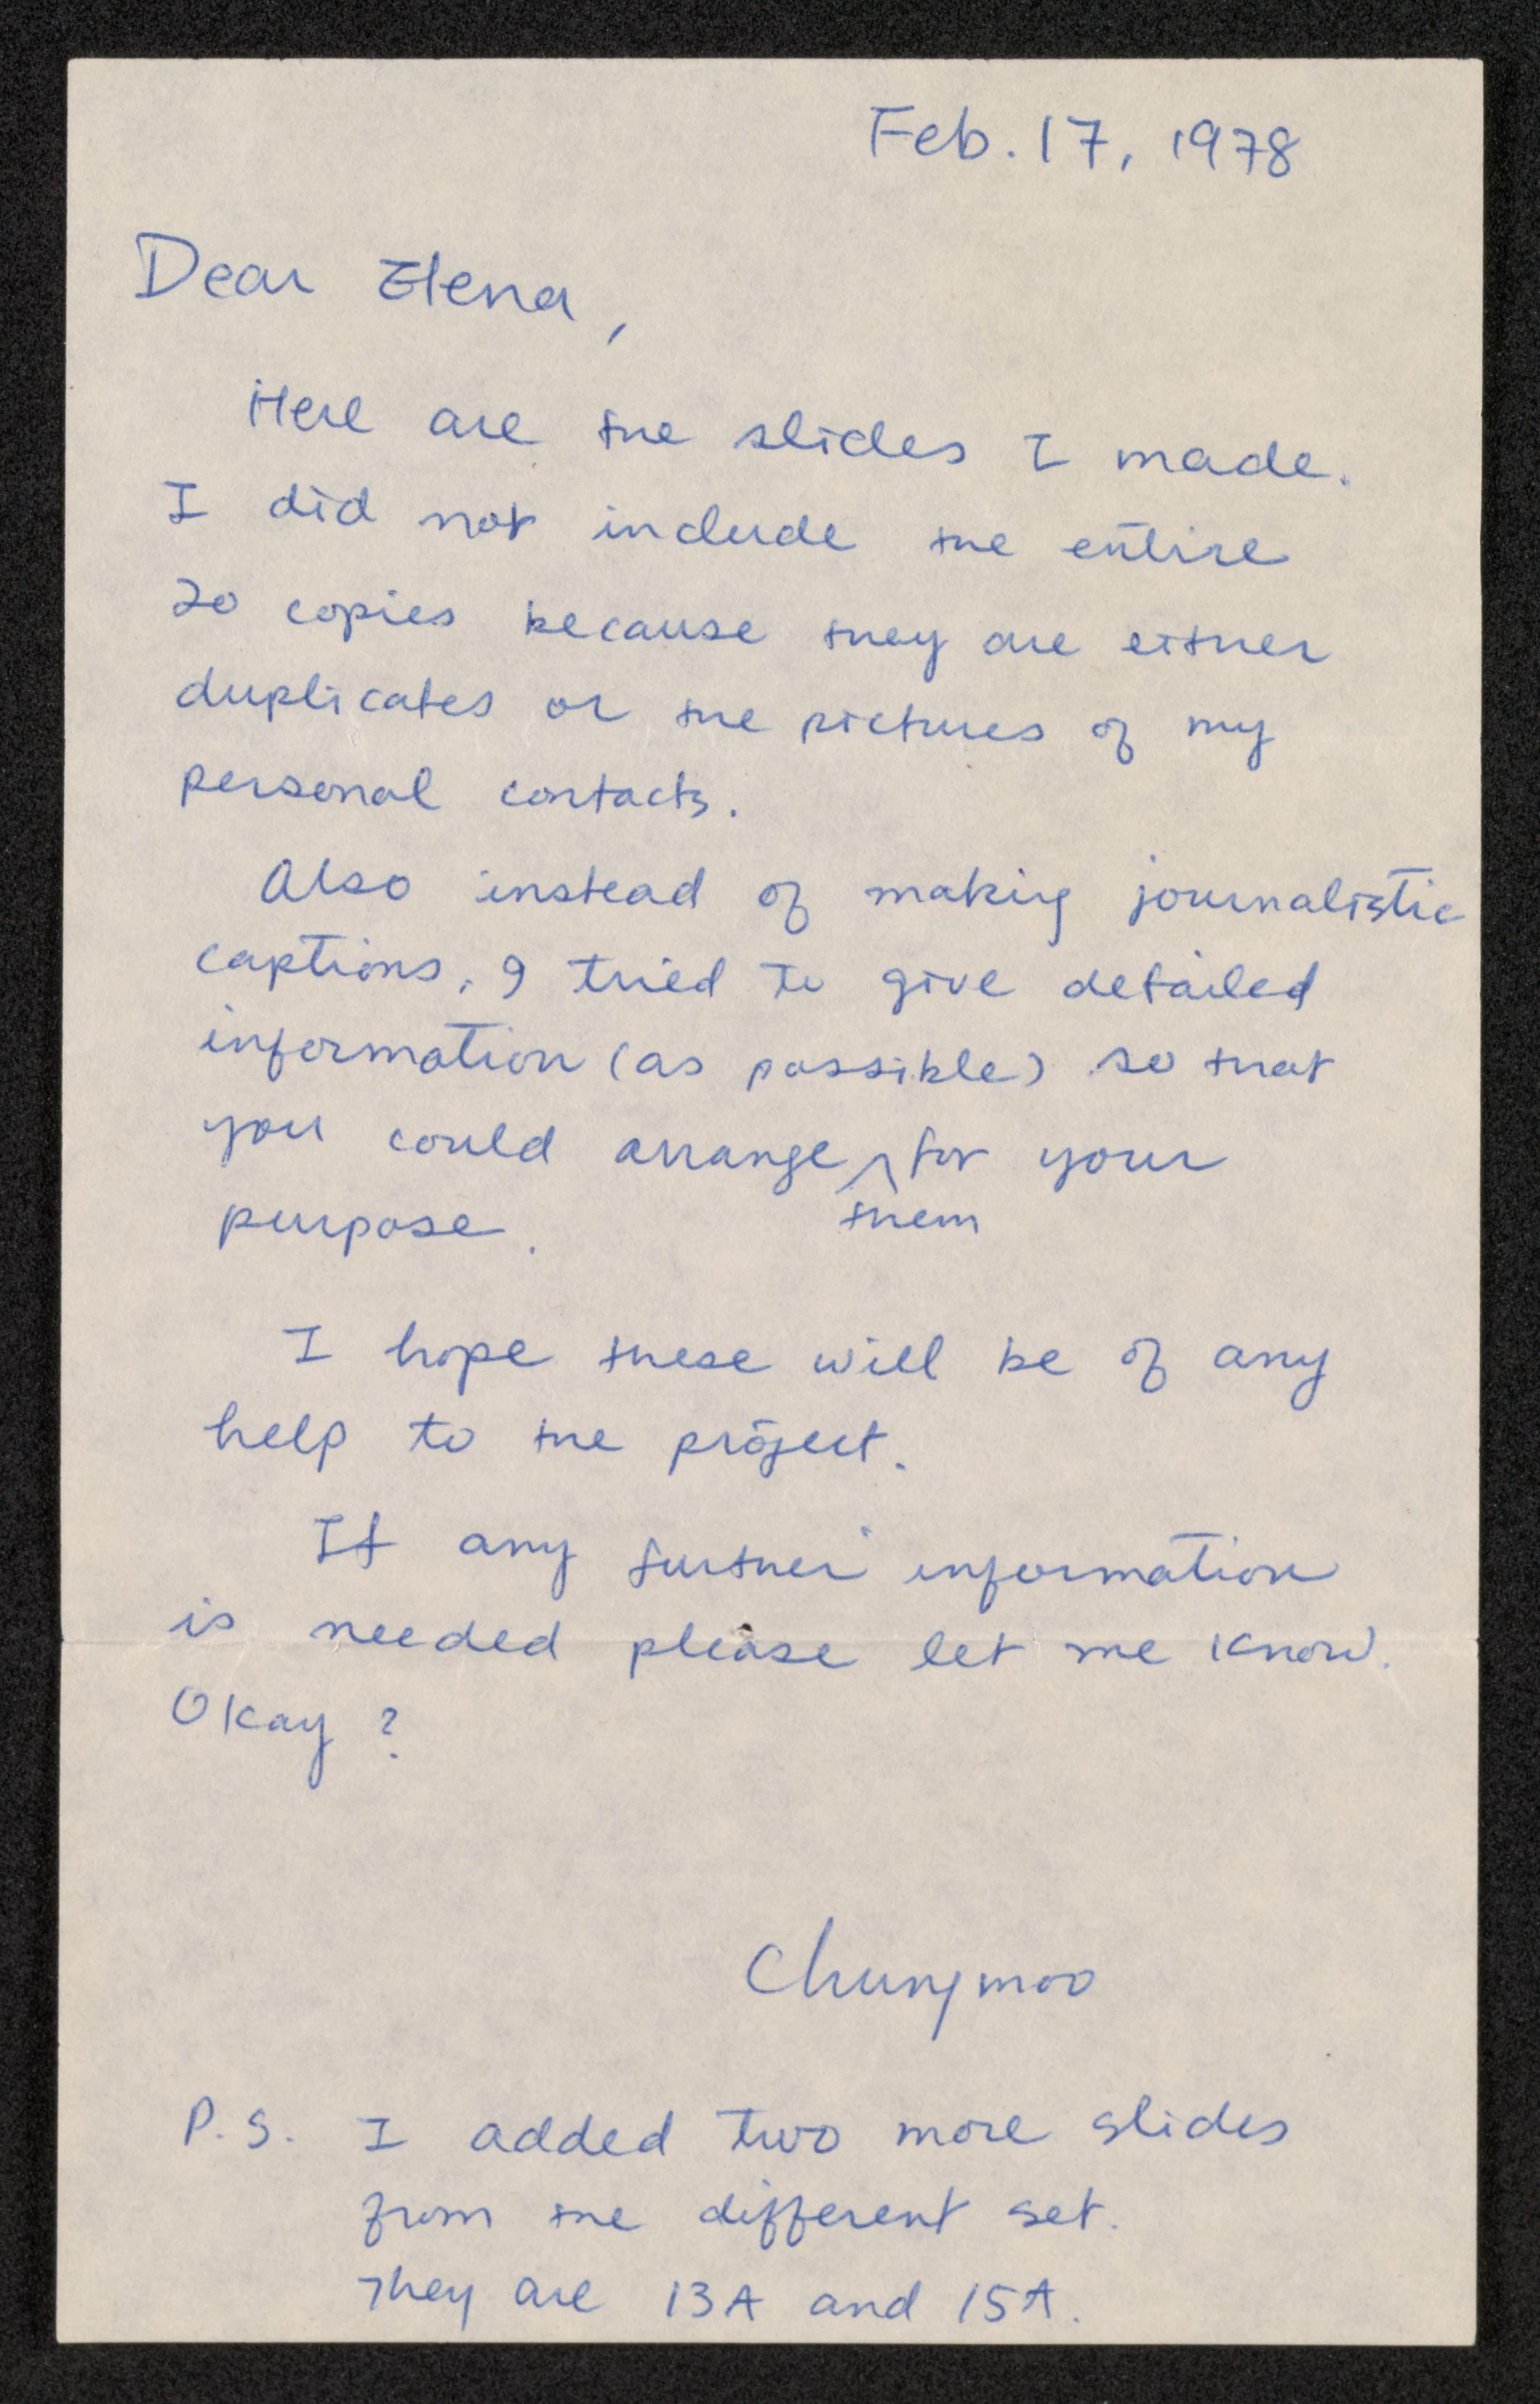 Feb. 17, 1978
Dear Elena,
Here are the slides I made.
I did not include the entire
20 copies because they are either
duplicates or the pictures of my
personal contacts.
Also instead of making journalistic
captions, I tried to give detailed
information (as possible) so that
you could arrange ^ for your
them
purpose.
I hope these will be of any
help to the project.
If any further information
is needed please let me know.
Okay ?
Chungmoo
P.S. I added two more slides
from the different set.
They are 13A and 15A.